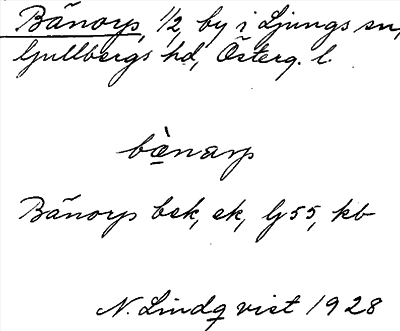 Bänorp, 1/2, by i Ljungs sn,
Gullbergs hd, Österg. l.
bæ̀narp
Bänorp bsk, ek, G 55, kb
N. Lindqvist 1928